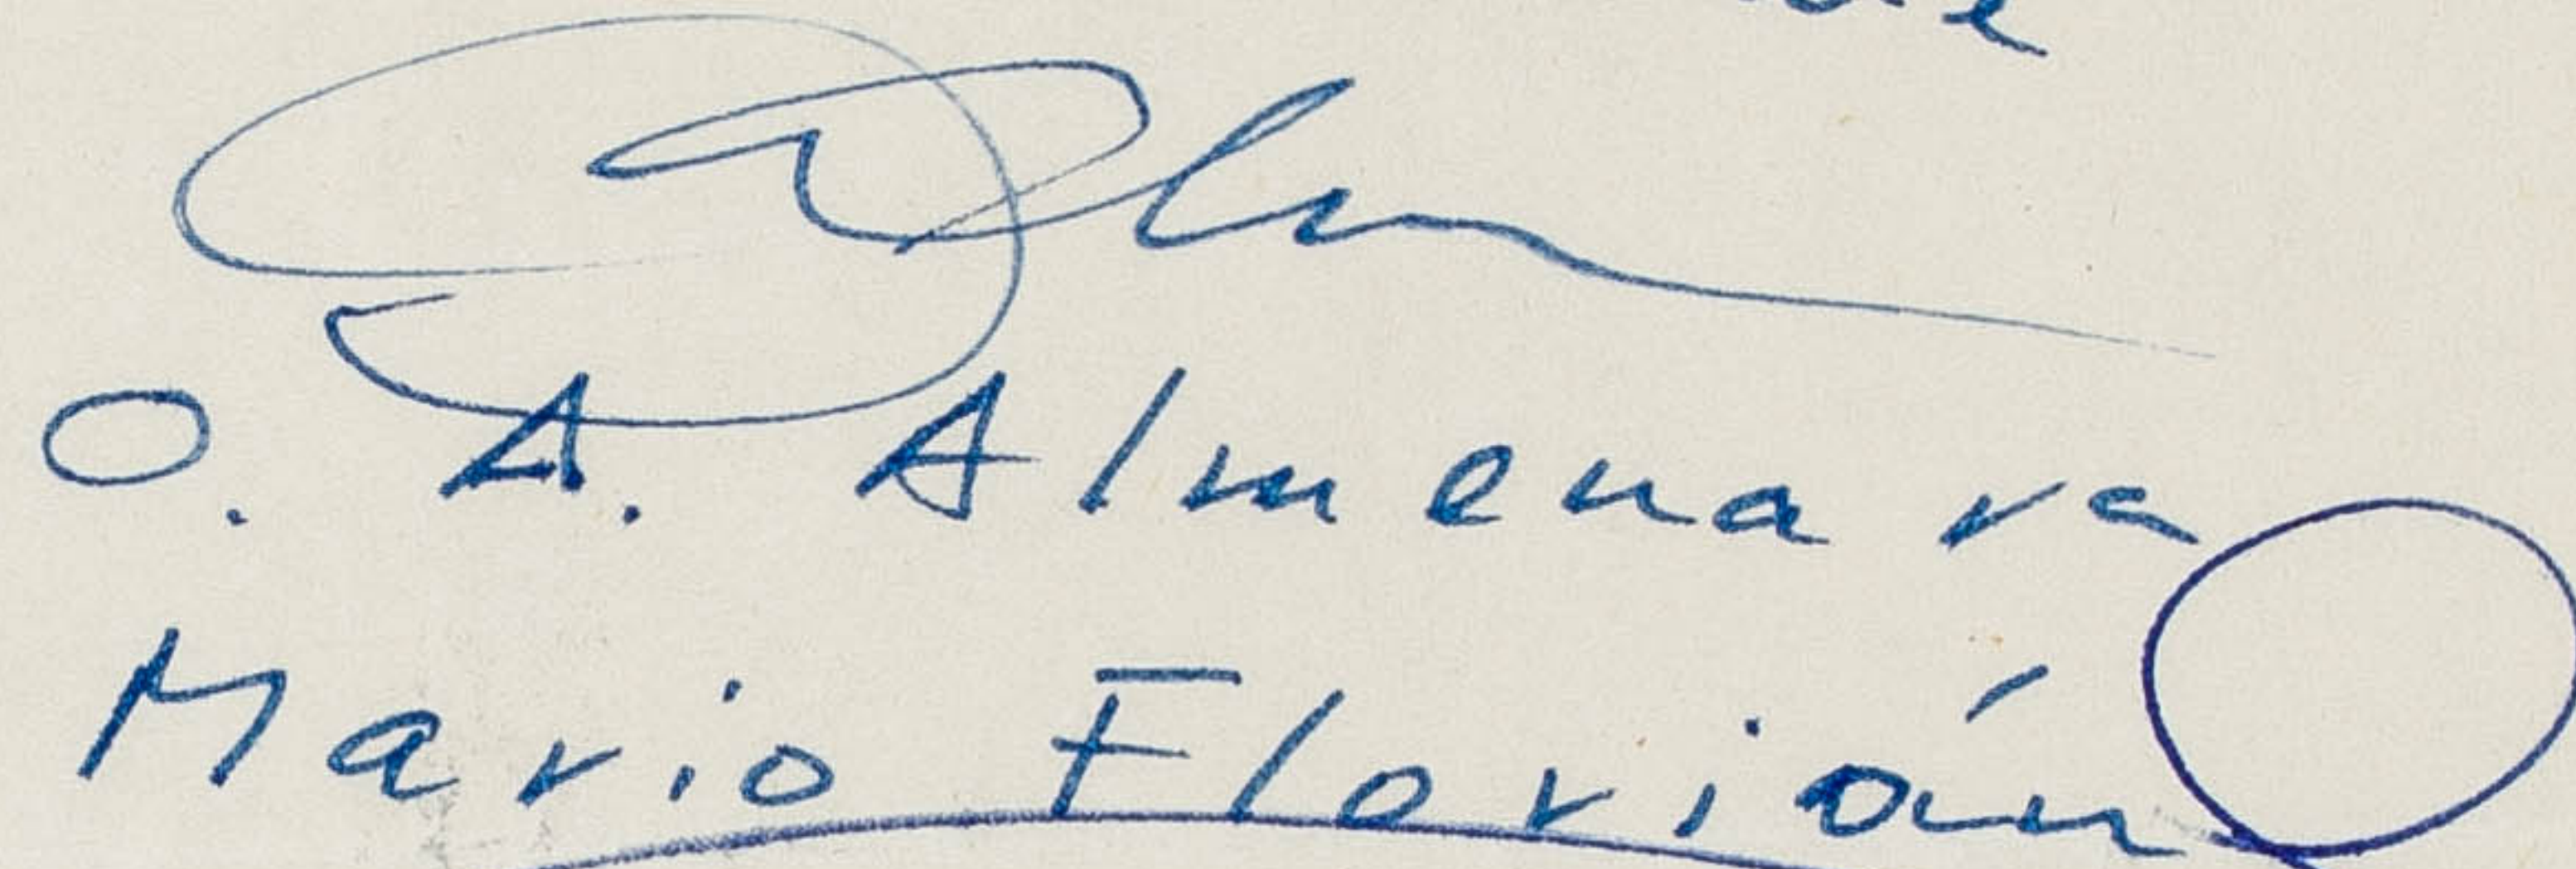 O. A. Almenara
Mario Florián